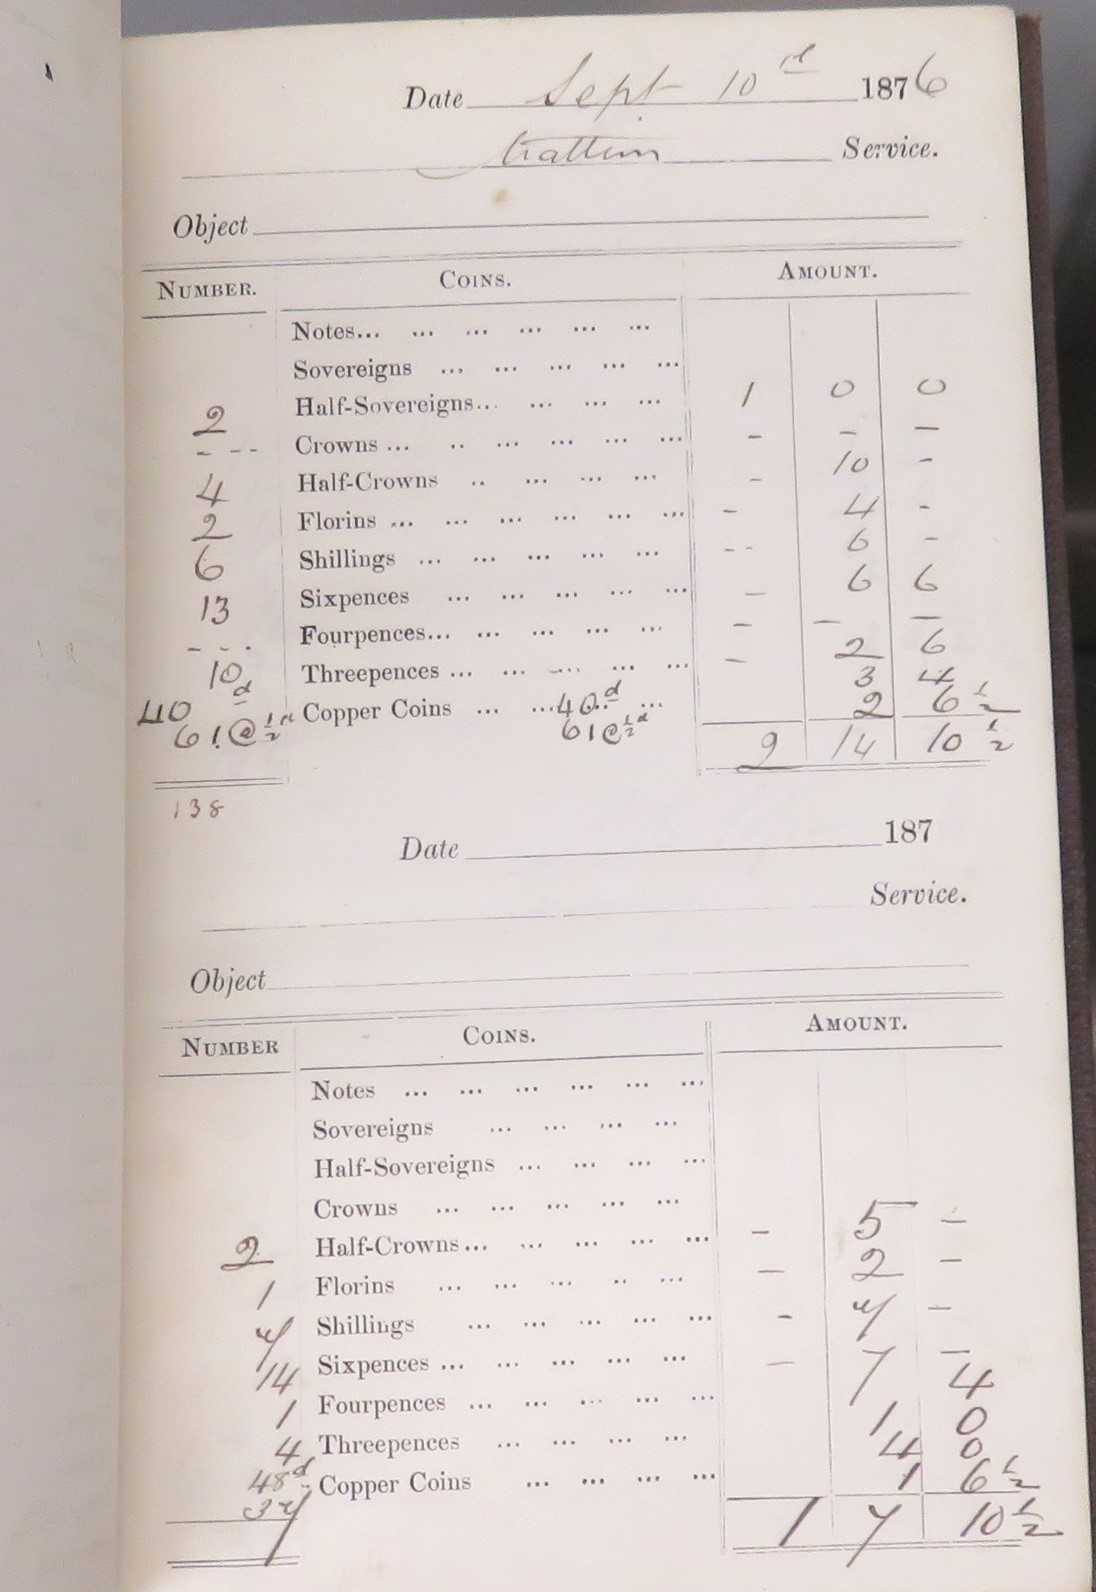 Date Sept 10th 1876
Service.
Object
NUMBER. COINS. AMOUNT.
Notes... ... ... ... ... ...
Sovereigns ... ... ... ... ...
2 Half-Sovereigns... ... ... ... 1 0 0
- - - Crowns ... .. ... ... ... ... - - -
4 Half-Crowns .. ... ... ... - 10 -
2 Florins ... ... ... ... ... ... - 4 -
6 Shillings ... ... ... ... ... - - 6 -
13 Sixpences ... ... ... ... ... - 6 6
- - - Fourpences... ... ... ... ... - - -
10 Threepences ... ... ... ... ... - 2 6
40d Copper Coins ... ...40.d ... 3 4
61@½d 61@½d 2 6½
2 14 10½
138
Date 187
Service.
Object
NUMBER COINS. AMOUNT.
Notes ... ... ... ... ... ...
Sovereigns ... ... ... ...
Half-Sovereigns ... ... ... ...
Crowns ... ... ... ... ...
2 Half-Crowns... ... ... ... ... - 5 -
1 Florins ... ... ... .. ... - 2 -
7 Shillings ... ... ... ... ... - 7 -
14 Sixpences ... ... ... ... ... - 7 -
1 Fourpences ... ... ... ... ... 4
4 Threepences ... ... ... ... 1 0
48d Copper Coins ... ... ... ... 4 0
37 1 6½
1 7 10½